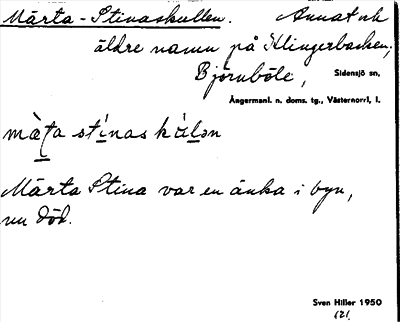 Märta-Stinaskullen. Annat nk
äldre namn på Klingerbacken,
Björnböle, Sidensjö sn,
Ångermanl. n. doms. tg., Västernorrl. l.
Märta Stina var en änka i byn,
nu död.
Sven Hiller 1950
121.